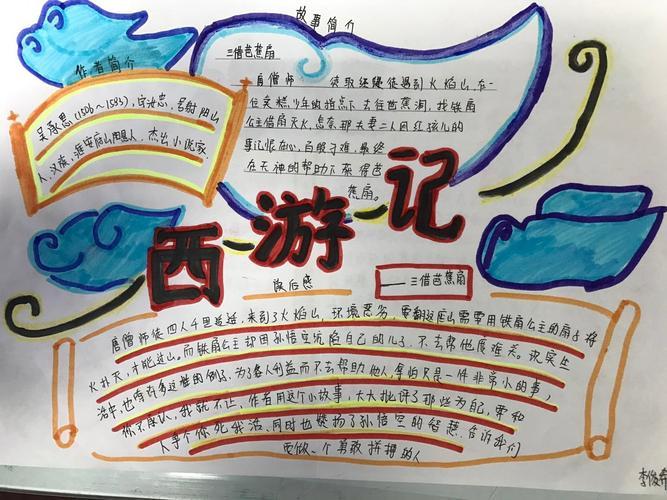 故事简介
作者简介
吴承恩(1506~1583),字汝忠,号射阳山
人,汉族,淮安府山阳县人.杰出小说家.
三借芭蕉扇
唐僧师 徒取经缘徒遇到火焰山,在一
位卖糕少年的指点下去往芭蕉洞,找铁扇
公主借扇灭火,怎奈那夫妻二人因红孩儿的
事记恨在心,百般刁难,最终
在天神的帮助下获得芭
蕉扇。
西游记
读后感
——三借芭蕉扇
唐僧师徒四人千里迢迢,来到了火焰山,环境恶劣,要翻这座山需要用铁扇公主的扇子将
火扑灭,才能过山。而铁扇公主却因孙悟空坑陷自己的儿子,不去帮他度难关。现实生
活中,也有许多这样的例子,为了
个人利益而不去帮助他人,哪怕只是一件非常小的事,
你不承认,我就不让,作者用这个小故事,大大批评了那些为自己,
人争个你死我活,同时也赞扬了孙悟空的智慧.告诉我们
要做一个勇敢拼搏的人